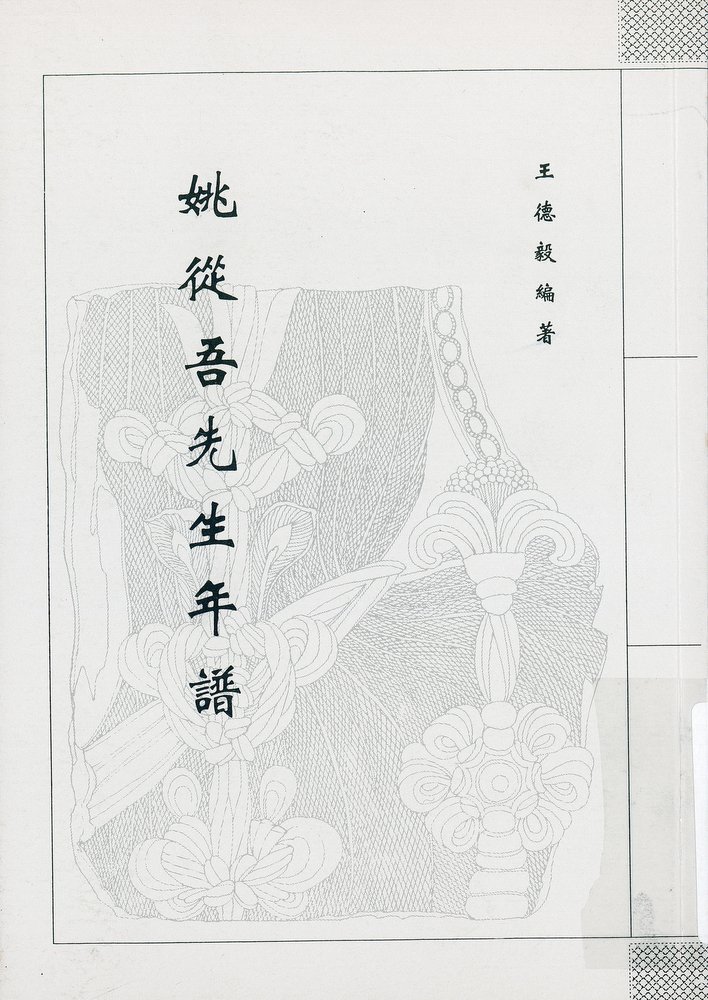 王德毅編著
姚從吾先生年譜